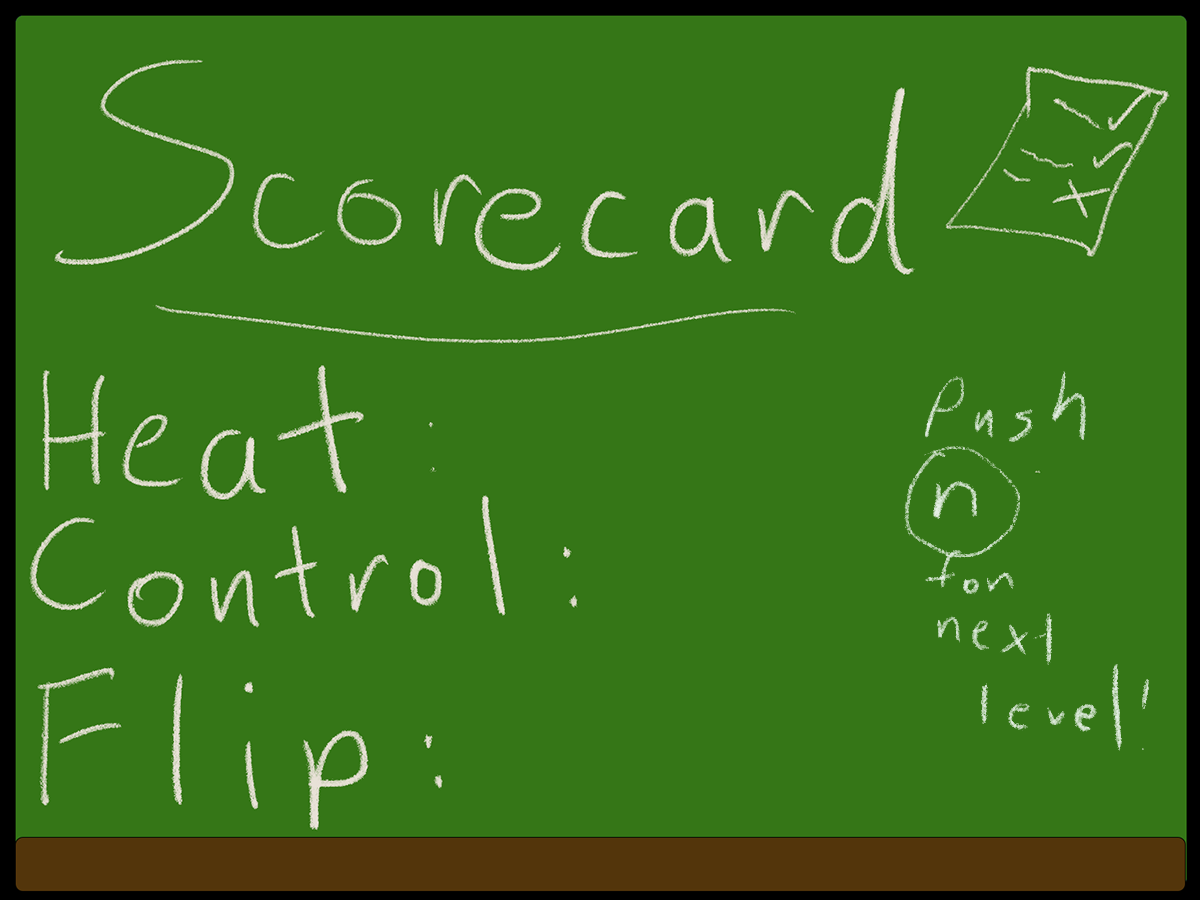 Scorecard
Heat:
Control:
Flip:
Push
n
for
next
level!